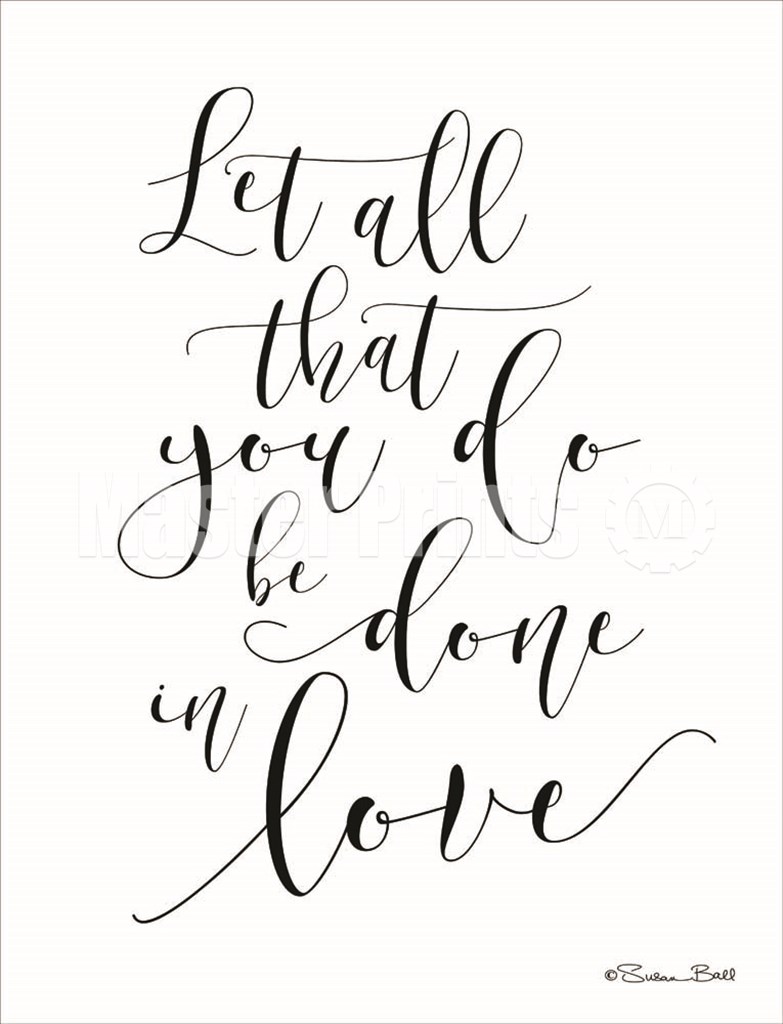 Let all
that
you do
Master Prints M
be
done
in
love
©Susan Ball